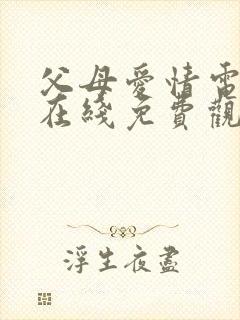 父母愛情電
在綫免費觀
浮生夜盡